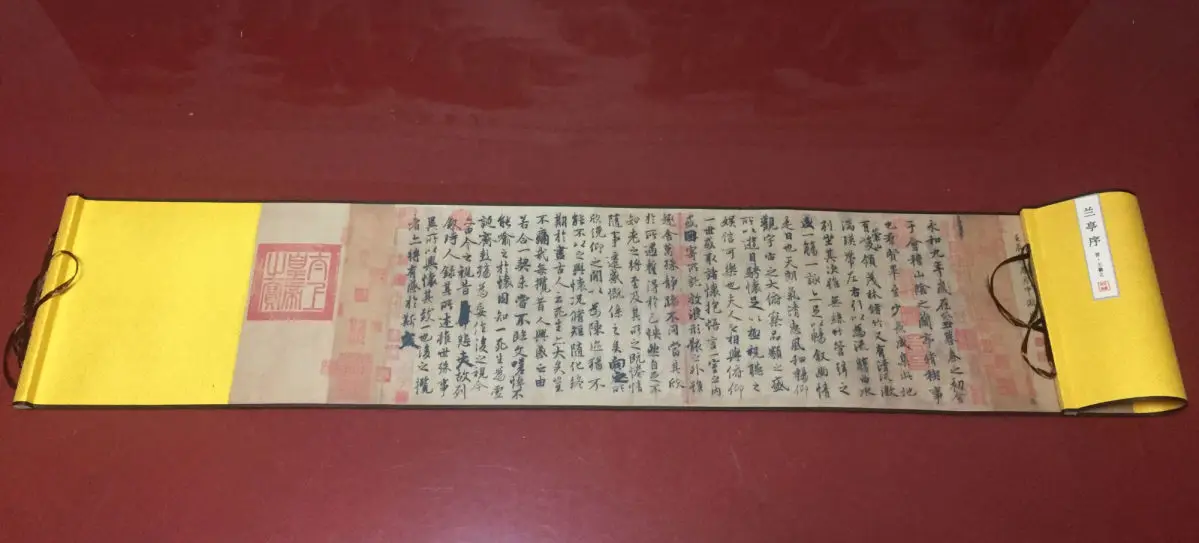 兰亭序
晋·王羲之
永和九年歲在癸丑暮春之初會
于會稽山陰之蘭亭脩稧事
也群賢畢至少長咸集此地
有崇山峻領茂林脩竹又有清流激
湍暎帶左右引以為流觴曲水
列坐其次雖無絲竹管弦之
盛一觴一詠亦足以暢敘幽情
是日也天朗氣清惠風和暢仰
觀宇宙之大俯察品類之盛
所以遊目騁懷足以極視聽之
娛信可樂也夫人之相與俯仰
一世或取諸懷抱悟言一室之內
或因寄所託放浪形骸之外雖
趣舍萬殊靜躁不同當其欣
於所遇暫得於己怏然自足不
知老之將至及其所之既惓情
隨事遷感慨係之矣向之所
欣俛仰之閒以為陳迹猶不
能不以之興懷況脩短隨化終
期於盡古人云死生亦大矣豈
不痛哉每攬昔人興感之由
若合一契未嘗不臨文嗟悼不
能喻之於懷固知一死生為虛
誕齊彭殤為妄作後之視今
亦由今之視昔悲夫故列
敘時人錄其所述雖世殊事
異所以興懷其致一也後之攬
者亦將有感於斯文
太上
皇帝
之寶